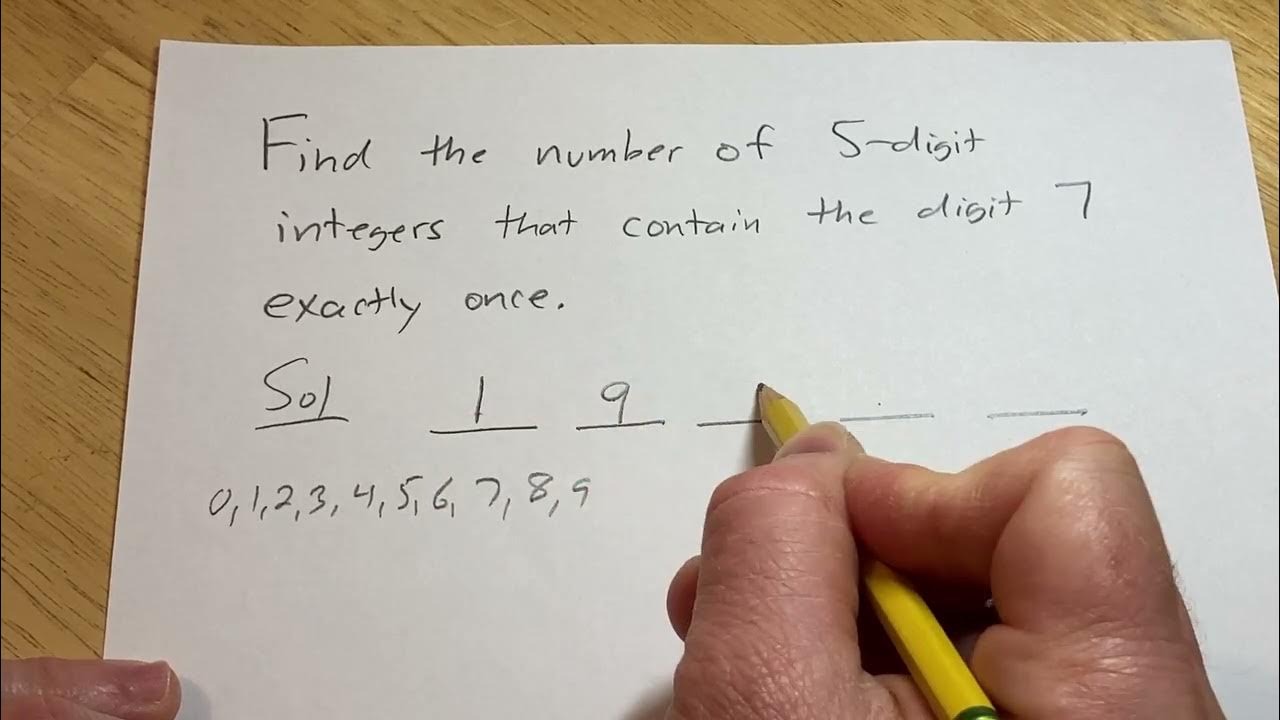 Find the number of 5-digit
integers that contain the digit 7
exactly once.
Sol 1 9
0,1,2,3,4,5,6,7,8,9